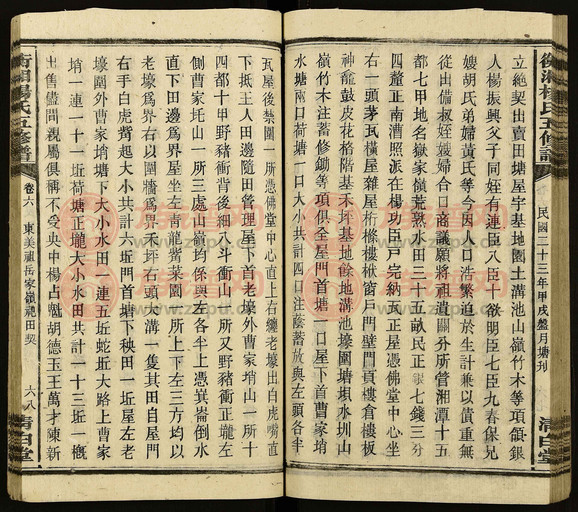 衡湘楊氏五修譜
民國二十三年甲戌盤月塘刊
清白堂
立絶契出賣田塘屋宇基地園土溝池山嶺竹木等項領銀
人楊振興父子同姪有連臣八臣十欲明臣七臣九春保兄
嫂胡氏弟婦黄氏等今因人口浩繁迫於生計兼以債重無
從出備叔姪嫂婦合口商議願將祖遺關分所管湘潭十五
都七甲地名嶽家嶺荒熟水田三十五畝民正銀七錢三分
四釐正南漕照派在楊功臣戶完納天正屋憑佛堂中心坐
右一頭茅瓦橫屋雜屋桁檁樓楸窗戶門壁門頁樓倉樓板
神龕鼓皮花格階基禾坪基地餘地溝池壕圍塘垻水圳山
嶺竹木注蓄修鋤等項俱全屋門首塘一口屋下首曹家垹
水塘兩口荷塘一口大小共計四口注蔭蓄放與左頭各半
瓦屋後禁園一所憑佛堂中心直上右纏老壕出白虎嘴直
下抵王人田邊隨田管理屋下首老壕外曹家垹山一所十
四都十甲野豬衝背後細八斗衝山一所又野豬衝正壠左
側曹家坵山一所三處山嶺均係與左各半上憑崀崙倒水
直下田邊爲界屋坐左青龍嘴菜園一所上下左三方均以
老壕爲界右以圍牆爲界禾坪石頭大溝一隻其田自屋門
右手白虎嘴起大小共計六坵門首塘下秧田一坵屋左老
壕圍外曹家垹塘下大小水田一連五坵蛇坵大路上曹家
垹一連十一坵荷塘正壠大小水田共計一十三坵一概
出售儘問親屬俱稱不受央中楊占魁胡德玉王萬才陳新
衡湘楊氏五修譜
卷六
東美祖岳家嶺祝田契
六八
清白堂